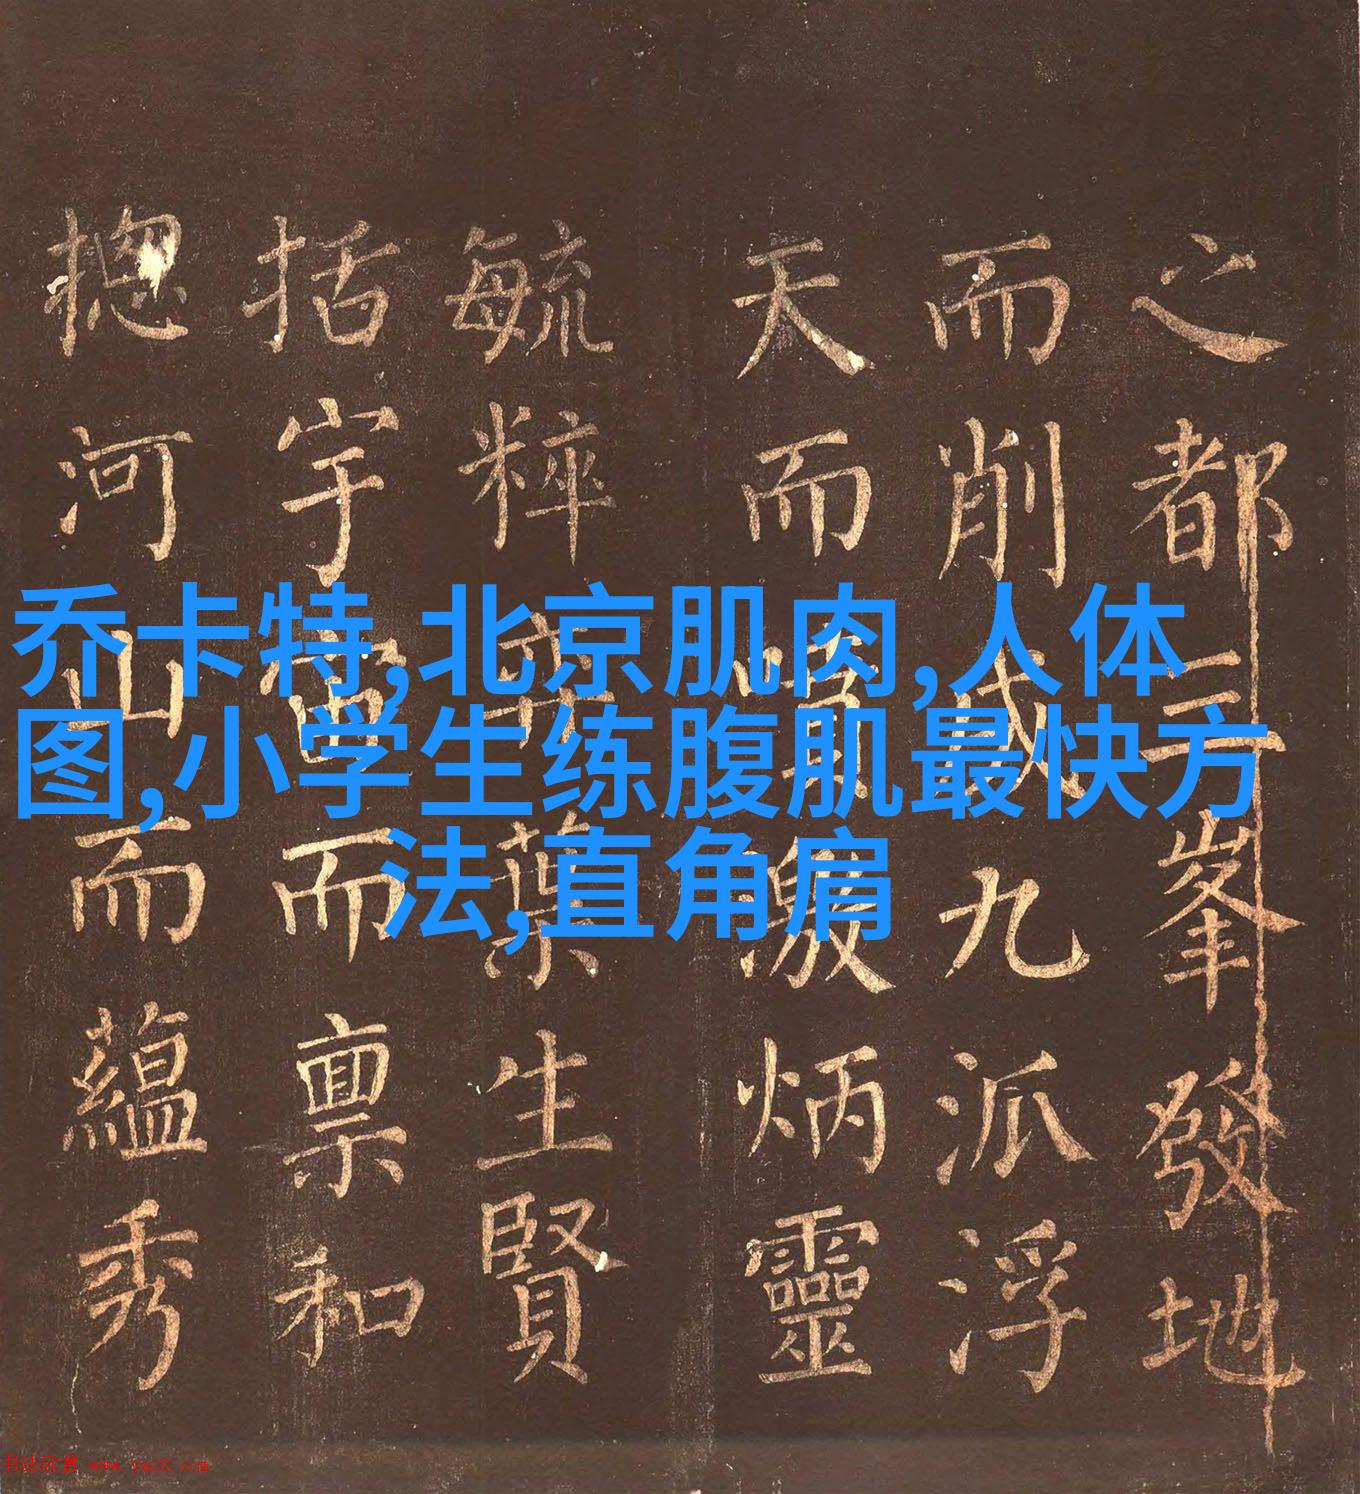 乔卡特,北京肌肉,人体
图,小学生练腹肌最快方
法,直角肩
之都三峯發地
而削成九派浮
天而激炳靈
毓粹葉生賢
括宇宙而禀和
摠河山而蘊秀
书法欣赏 www.yac8.com